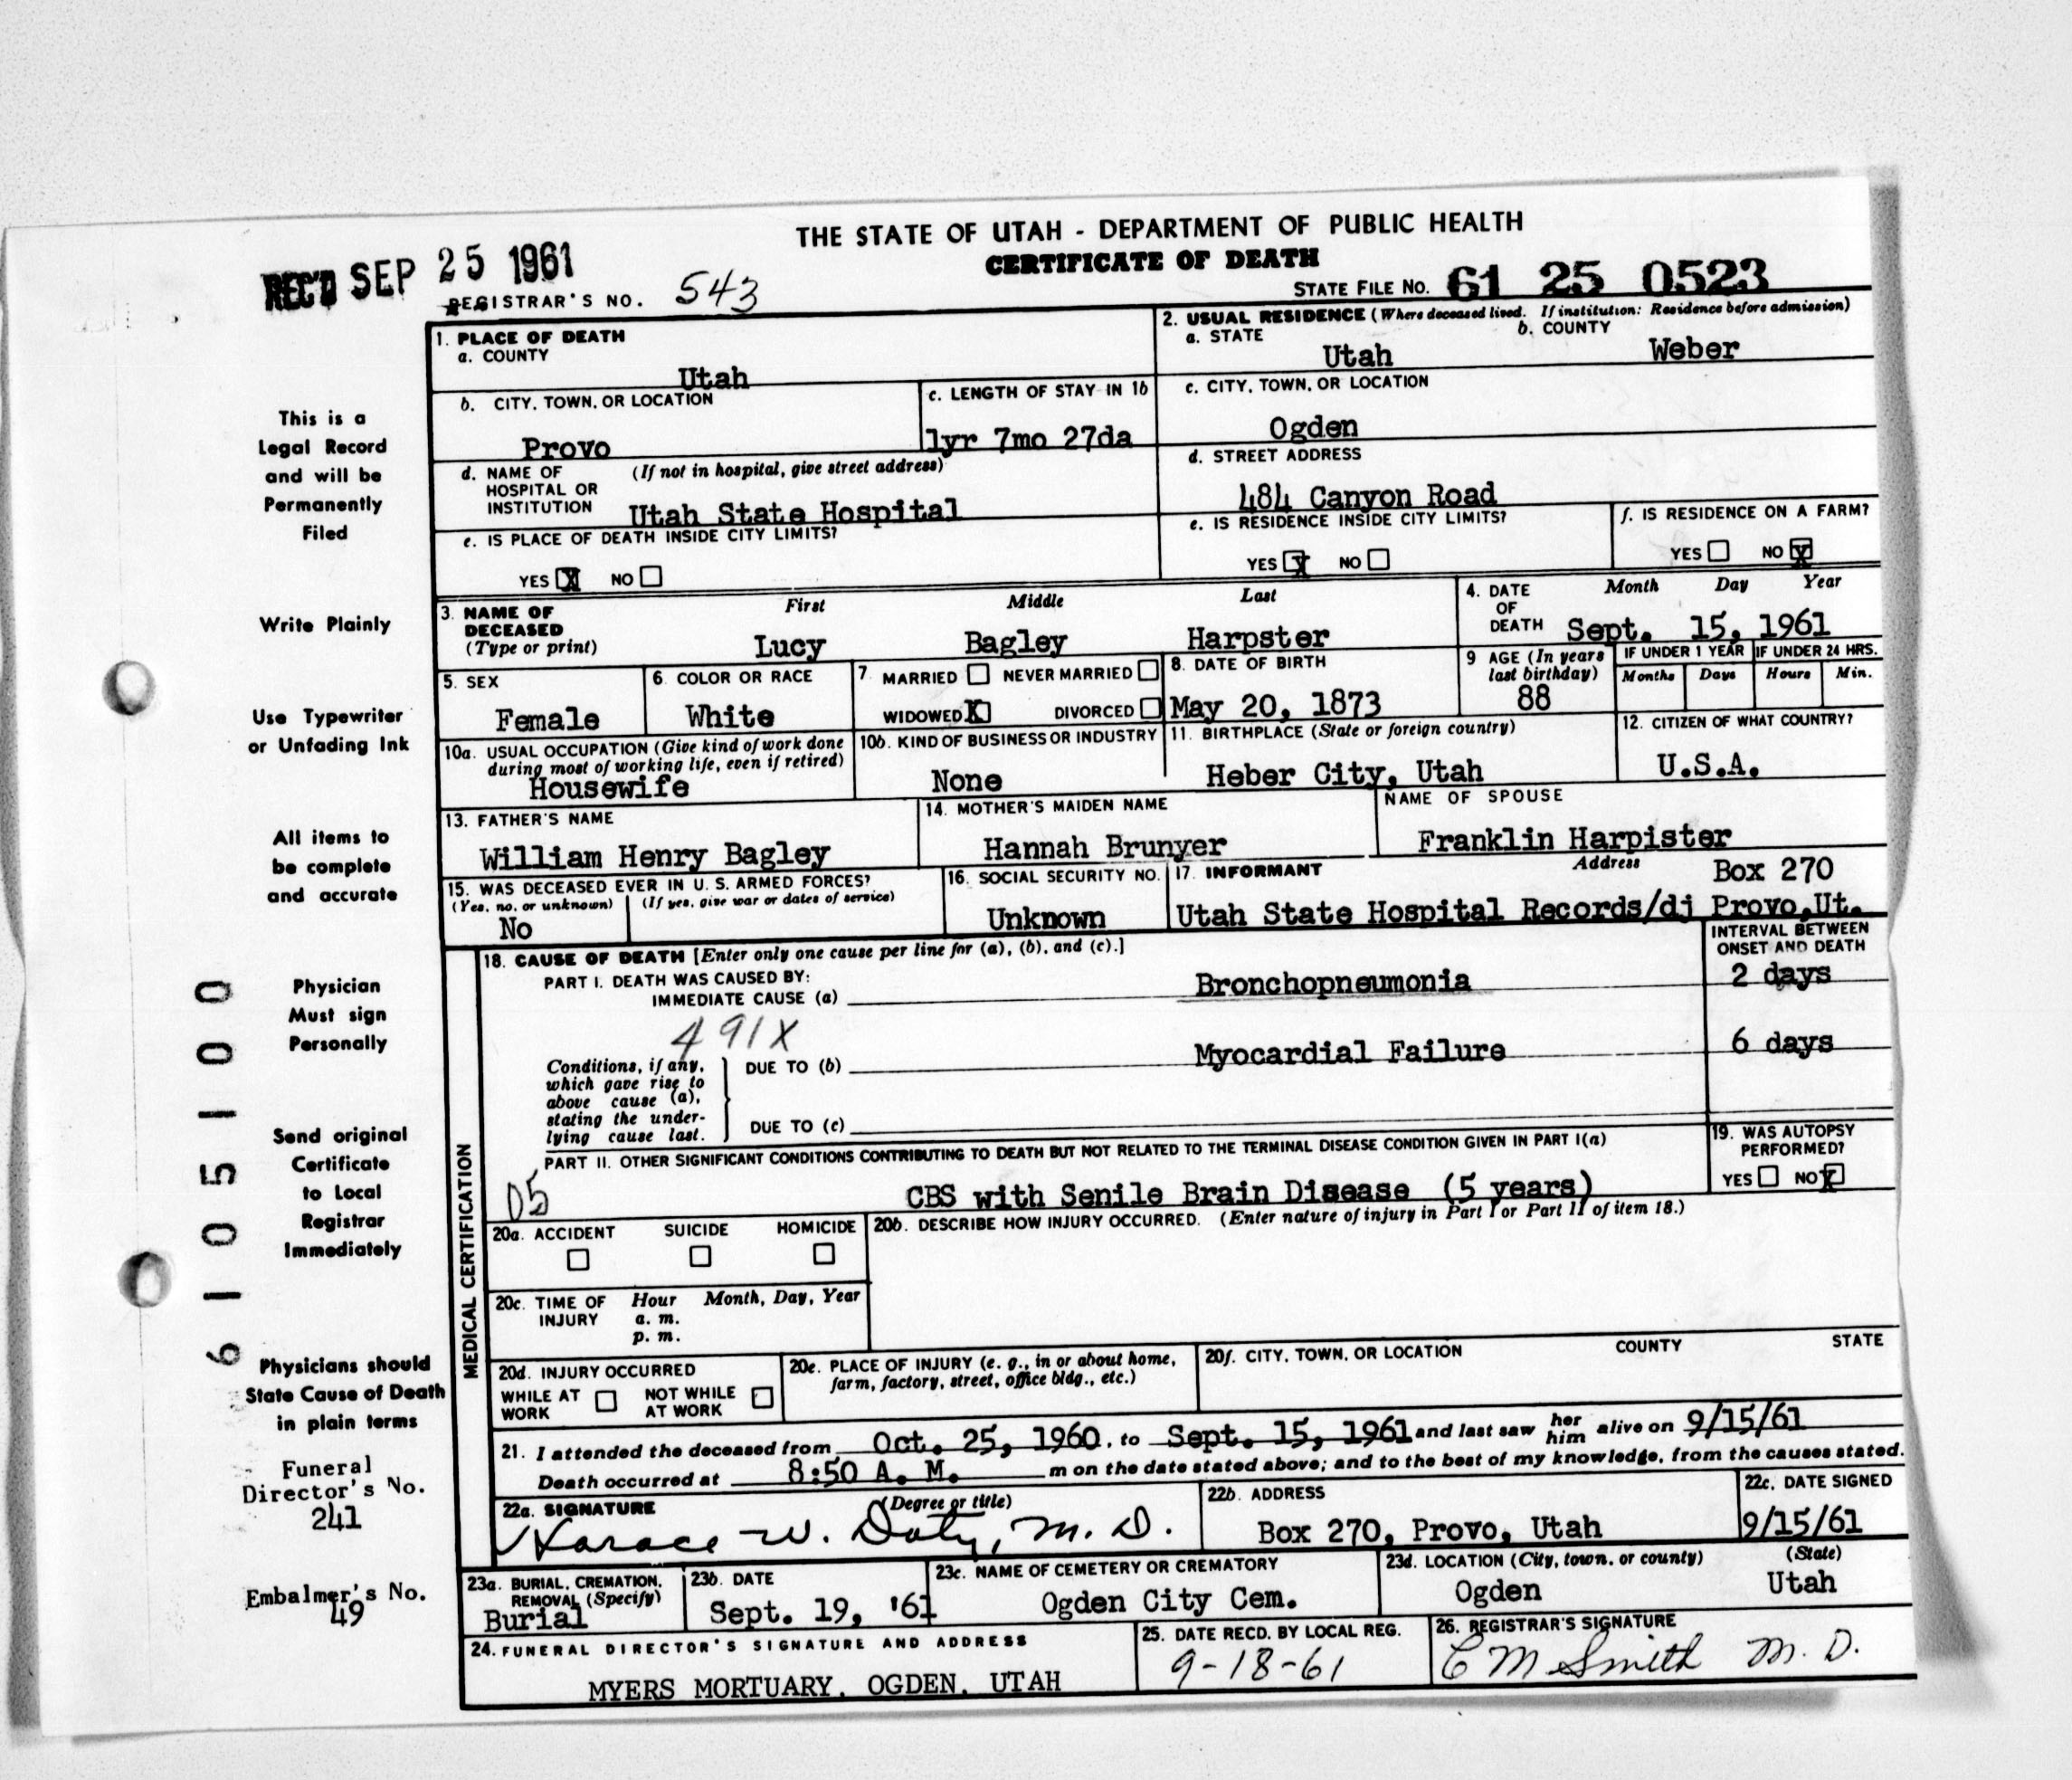 THE STATE OF UTAH - DEPARTMENT OF PUBLIC HEALTH
CERTIFICATE OF DEATH
REC'D SEP 25 1961
REGISTRAR'S NO. 543
STATE FILE NO. 61 25 0523
1. PLACE OF DEATH
a. COUNTY
Utah
2. USUAL RESIDENCE (Where deceased lived. If institution: Residence before admission)
a. STATE
Utah
b. COUNTY
Weber
b. CITY, TOWN, OR LOCATION
Provo
c. LENGTH OF STAY IN 1b
1yr 7mo 27da
c. CITY, TOWN, OR LOCATION
Ogden
d. NAME OF HOSPITAL OR INSTITUTION
(If not in hospital, give street address)
Utah State Hospital
d. STREET ADDRESS
484 Canyon Road
e. IS PLACE OF DEATH INSIDE CITY LIMITS?
YES X NO
e. IS RESIDENCE INSIDE CITY LIMITS?
YES X NO
f. IS RESIDENCE ON A FARM?
YES NO X
3. NAME OF DECEASED
(Type or print)
First Middle Last
Lucy Bagley Harpster
4. DATE OF DEATH
Month Day Year
Sept. 15, 1961
5. SEX
Female
6. COLOR OR RACE
White
7. MARRIED NEVER MARRIED
WIDOWED X DIVORCED
8. DATE OF BIRTH
May 20, 1873
9 AGE (In years last birthday)
88
IF UNDER 1 YEAR
Months Days
IF UNDER 24 HRS.
Hours Min.
10a. USUAL OCCUPATION (Give kind of work done during most of working life, even if retired)
Housewife
10b. KIND OF BUSINESS OR INDUSTRY
None
11. BIRTHPLACE (State or foreign country)
Heber City, Utah
12. CITIZEN OF WHAT COUNTRY?
U.S.A.
13. FATHER'S NAME
William Henry Bagley
14. MOTHER'S MAIDEN NAME
Hannah Brunyer
NAME OF SPOUSE
Franklin Harpister
15. WAS DECEASED EVER IN U. S. ARMED FORCES?
(Yes, no, or unknown) (If yes, give war or dates of service)
No
16. SOCIAL SECURITY NO.
Unknown
17. INFORMANT Address
Box 270
Utah State Hospital Records/dj Provo, Ut.
MEDICAL CERTIFICATION
18. CAUSE OF DEATH [Enter only one cause per line for (a), (b), and (c).]
INTERVAL BETWEEN ONSET AND DEATH
PART I. DEATH WAS CAUSED BY:
IMMEDIATE CAUSE (a) Bronchopneumonia 2 days
491X
Conditions, if any,
which gave rise to
above cause (a),
stating the under-
lying cause last.
DUE TO (b) Myocardial Failure 6 days
DUE TO (c)
PART II. OTHER SIGNIFICANT CONDITIONS CONTRIBUTING TO DEATH BUT NOT RELATED TO THE TERMINAL DISEASE CONDITION GIVEN IN PART I(a)
05
CBS with Senile Brain Disease (5 years)
19. WAS AUTOPSY PERFORMED?
YES NO X
20a. ACCIDENT SUICIDE HOMICIDE
20b. DESCRIBE HOW INJURY OCCURRED. (Enter nature of injury in Part I or Part II of item 18.)
20c. TIME OF INJURY
Hour Month, Day, Year
a. m.
p. m.
20d. INJURY OCCURRED
WHILE AT WORK NOT WHILE AT WORK
20e. PLACE OF INJURY (e. g., in or about home, farm, factory, street, office bldg., etc.)
20f. CITY, TOWN, OR LOCATION COUNTY STATE
21. I attended the deceased from Oct. 25, 1960, to Sept. 15, 1961 and last saw her him alive on 9/15/61
Death occurred at 8:50 A. M. m on the date stated above; and to the best of my knowledge, from the causes stated.
22a. SIGNATURE (Degree or title)
Horace W. Doty, M. D.
22b. ADDRESS
Box 270, Provo, Utah
22c. DATE SIGNED
9/15/61
23a. BURIAL, CREMATION, REMOVAL (Specify)
Burial
23b. DATE
Sept. 19, '61
23c. NAME OF CEMETERY OR CREMATORY
Ogden City Cem.
23d. LOCATION (City, town, or county) (State)
Ogden Utah
24. FUNERAL DIRECTOR'S SIGNATURE AND ADDRESS
MYERS MORTUARY, OGDEN, UTAH
25. DATE RECD. BY LOCAL REG.
9-18-61
26. REGISTRAR'S SIGNATURE
C M Smith M. D.
This is a
Legal Record
and will be
Permanently
Filed
Write Plainly
Use Typewriter
or Unfading Ink
All items to
be complete
and accurate
Physician
Must sign
Personally
Send original
Certificate
to Local
Registrar
Immediately
Physicians should
State Cause of Death
in plain terms
Funeral
Director's No.
241
Embalmer's No.
49
6105100